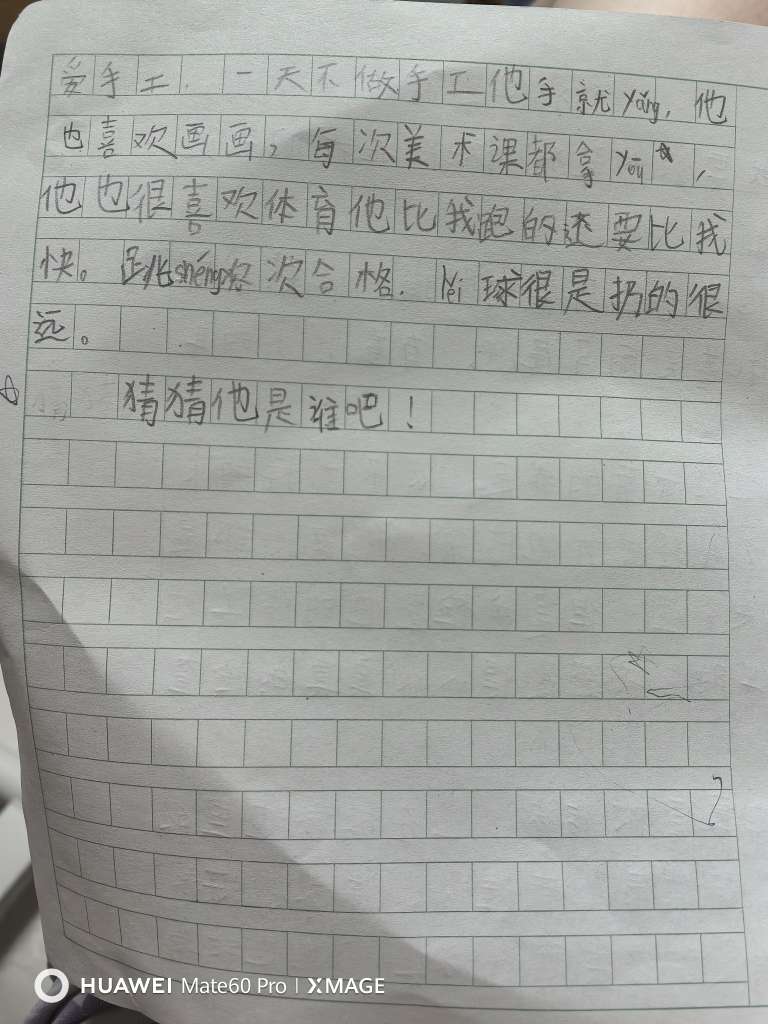 爱手工.一天不做手工他手就yǎng,他
也喜欢画画,每次美术课都拿yōu☆,
他也很喜欢体育他比我跑的还要比我
快。跳shéng次次合格.lěi球很是扔的很
远。
猜猜他是谁吧!
HUAWEI Mate60 Pro | XMAGE